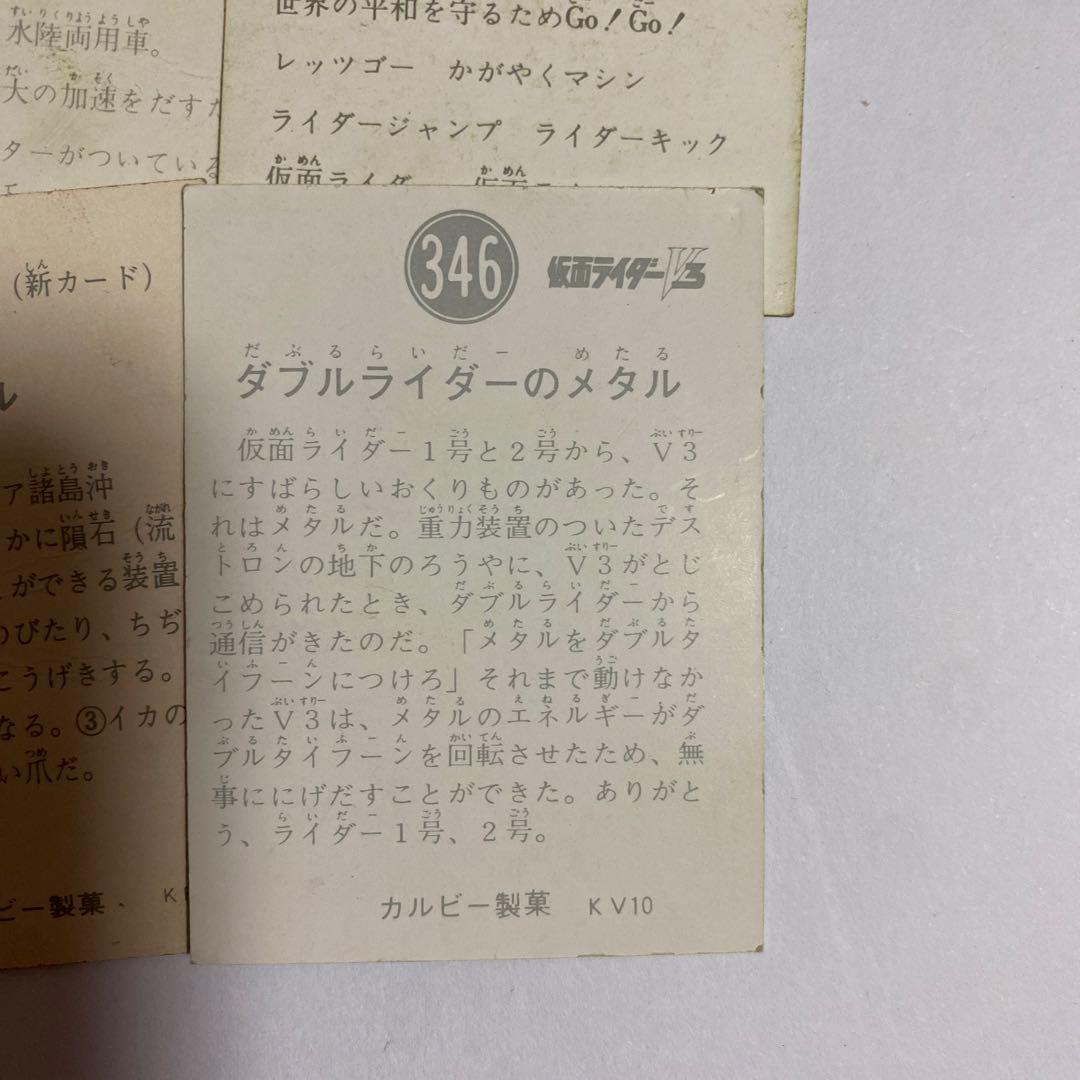 水陸両用車。
大の加速をだすた
ターがついている
世界の平和を守るためGo!Go!
レッツゴー　かがやくマシン
ライダージャンプ　ライダーキック
仮面ライダー
(新カード)
ル
ア諸島沖
かに隕石（流
ができる装置
のびたり、ちぢ
こうげきする。
なる。③イカの
い爪だ。
ビー製菓　K
346
仮面ライダーV3
ダブルライダーのメタル
仮面ライダー1号と2号から、V3
にすばらしいおくりものがあった。そ
れはメタルだ。重力装置のついたデス
トロンの地下のろうやに、V3がとじ
こめられたとき、ダブルライダーから
通信がきたのだ。「メタルをダブルタ
イフーンにつけろ」それまで動けなか
ったV3は、メタルのエネルギーがダ
ブルタイフーンを回転させたため、無
事ににげだすことができた。ありがと
う、ライダー1号、2号。
カルビー製菓　KV10